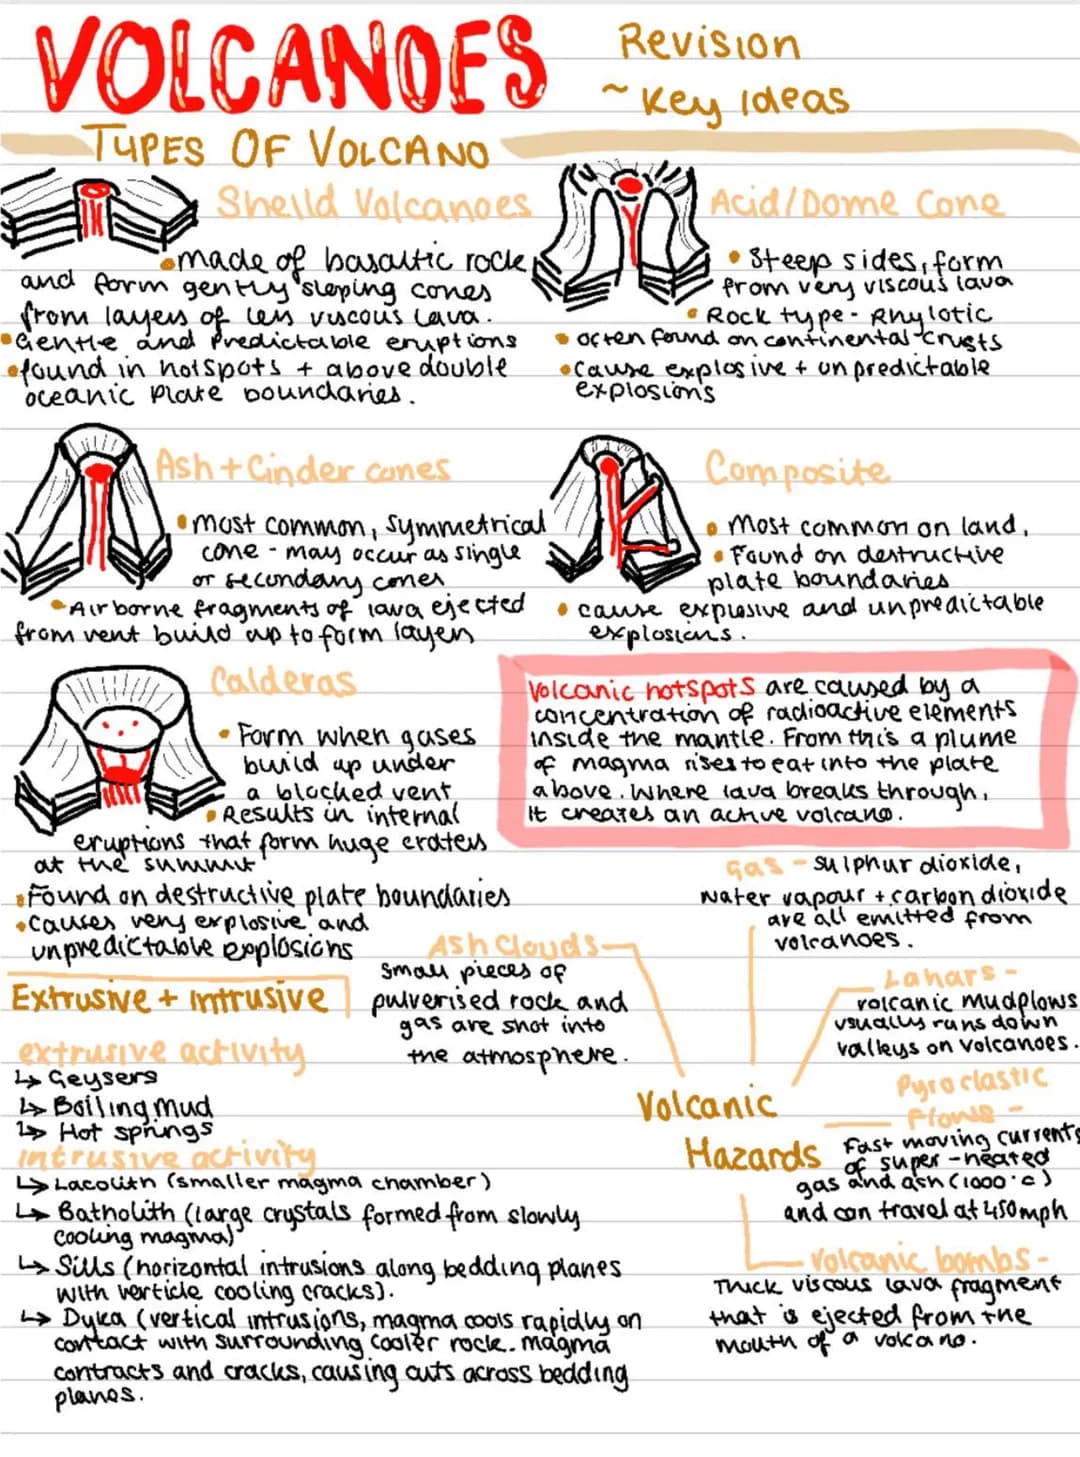 VOLCANOES
Revision
~ Key Ideas
TYPES OF VOLCANO
Sheild Volcanoes
•made of basaltic rock
and form gently sloping cones
from layers of less viscous lava.
•Gentle and Predictable eruptions
•found in hotspots + above double
oceanic plate boundaries.
Acid/Dome Cone
• Steep sides, form
from very viscous lava
• Rock type - Rhylotic
• often found on continental crusts
•Cause explosive + unpredictable
explosions
Ash + Cinder cones
•most common, symmetrical
cone - may occur as single
or secondary cones
•Airborne fragments of lava ejected
from vent build up to form layers
Composite
• Most common on land,
• Found on destructive
plate boundaries
• cause explosive and unpredictable
explosions.
Calderas
• Form when gases
build up under
a blocked vent
• Results in internal
eruptions that form huge craters
at the summit
•Found on destructive plate boundaries
•causes very explosive and
unpredictable explosions
Volcanic hotspots are caused by a
concentration of radioactive elements
inside the mantle. From this a plume
of magma rises to eat into the plate
above. Where lava breaks through,
it creates an active volcano.
Extrusive + Intrusive
extrusive activity
↳ Geysers
↳ Boiling Mud
↳ Hot springs
intrusive activity
↳ Lacolith (smaller magma chamber)
↳ Batholith (large crystals formed from slowly
cooling magma)
↳ Sills (horizontal intrusions along bedding planes
with verticle cooling cracks).
↳ Dyka (vertical intrusions, magma cools rapidly on
contact with surrounding cooler rock. magma
contracts and cracks, causing cuts across bedding
planes.
Volcanic
Hazards
Ash Clouds-
Small pieces of
pulverised rock and
gas are shot into
the atmosphere.
Gas - sulphur dioxide,
water vapour + carbon dioxide
are all emitted from
volcanoes.
Lahars -
volcanic mudflows
usually runs down
valleys on volcanoes.
Pyroclastic
Flows -
Fast moving currents
of super-heated
gas and ash (1000°c)
and can travel at 450mph
Volcanic bombs -
Thick viscous lava fragment
that is ejected from the
mouth of a volcano.